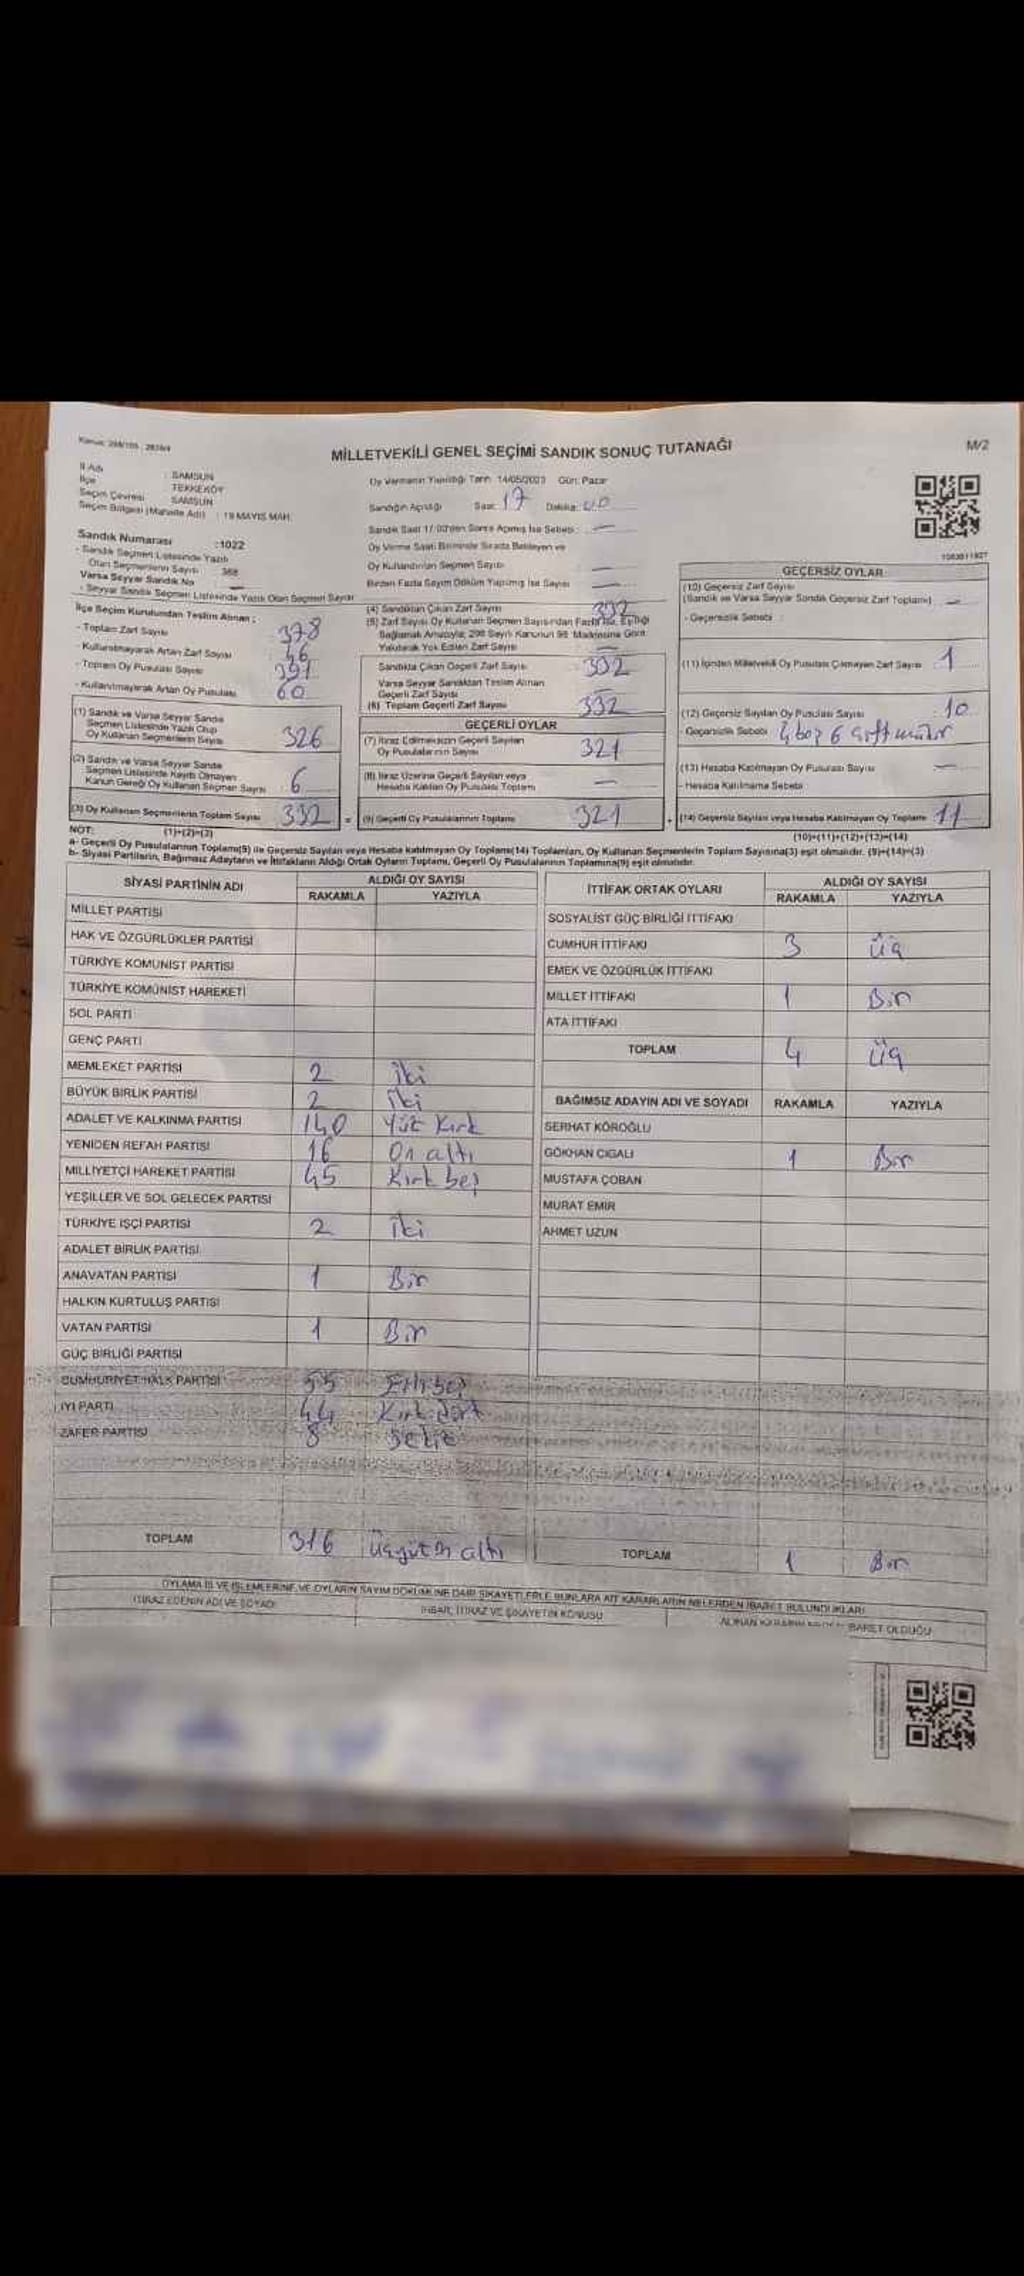 MİLLETVEKİLİ GENEL SEÇİMİ SANDIK SONUÇ TUTANAĞI
M/2
İl Adı : SAMSUN
İlçe : TEKKEKÖY
Seçim Çevresi : SAMSUN
Seçim Bölgesi (Mahalle Adı) : 19 MAYIS MAH.
Sandık Numarası :1022
- Sandık Seçmen Listesinde Yazılı
Olan Seçmenlerin Sayısı : 368
Varsa Seyyar Sandık No
- Seyyar Sandık Seçmen Listesinde Yazılı Olan Seçmen Sayısı
Oy Vermenin Yapıldığı Tarih: 14/05/2023 Gün: Pazar
Sandığın Açıldığı Saat: 17 Dakika: 00
Sandık Saat 17:00'den Sonra Açılmış İse Sebebi: —
Oy Verme Saati Bitiminde Sırada Bekleyen ve
Oy Kullandırılan Seçmen Sayısı —
Birden Fazla Sayım Döküm Yapılmış İse Sayısı —
İlçe Seçim Kurulundan Teslim Alınan :
- Toplam Zarf Sayısı 378
- Kullanılmayarak Artan Zarf Sayısı 46
- Toplam Oy Pusulası Sayısı 391
- Kullanılmayarak Artan Oy Pusulası 60
(1) Sandık ve Varsa Seyyar Sandık
Seçmen Listesinde Yazılı Olup
Oy Kullanan Seçmenlerin Sayısı 326
(2) Sandık ve Varsa Seyyar Sandık
Seçmen Listesinde Kayıtlı Olmayan
Kanun Gereği Oy Kullanan Seçmen Sayısı 6
(3) Oy Kullanan Seçmenlerin Toplam Sayısı 332 =
(1)+(2)=(3)
(4) Sandıktan Çıkan Zarf Sayısı 332
(5) Zarf Sayısı Oy Kullanan Seçmen Sayısından Fazla İse, Eşitliği
Sağlamak Amacıyla; 298 Sayılı Kanunun 98. Maddesine Göre
Yakılarak Yok Edilen Zarf Sayısı —
Sandıkta Çıkan Geçerli Zarf Sayısı 332
Varsa Seyyar Sandıktan Teslim Alınan
Geçerli Zarf Sayısı —
(6) Toplam Geçerli Zarf Sayısı 332
GEÇERLİ OYLAR
(7) İtiraz Edilmeksizin Geçerli Sayılan
Oy Pusulalarının Sayısı 321
(8) İtiraz Üzerine Geçerli Sayılan veya
Hesaba Katılan Oy Pusulası Toplamı —
(9) Geçerli Oy Pusulalarının Toplamı 321 +
GEÇERSİZ OYLAR
(10) Geçersiz Zarf Sayısı
(Sandık ve Varsa Seyyar Sandık Geçersiz Zarf Toplamı) —
- Geçersizlik Sebebi :
(11) İçinden Milletvekili Oy Pusulası Çıkmayan Zarf Sayısı 1
(12) Geçersiz Sayılan Oy Pusulası Sayısı 10
Geçersizlik Sebebi 4 boş 6 çift mühür
(13) Hesaba Katılmayan Oy Pusulası Sayısı —
- Hesaba Katılmama Sebebi
(14) Geçersiz Sayılan veya Hesaba Katılmayan Oy Toplamı 11
(10)+(11)+(12)+(13)=(14)
NOT:
a- Geçerli Oy Pusulalarının Toplamı(9) ile Geçersiz Sayılan veya Hesaba katılmayan Oy Toplamı(14) Toplamları, Oy Kullanan Seçmenlerin Toplam Sayısına(3) eşit olmalıdır. (9)+(14)=(3)
b- Siyasi Partilerin, Bağımsız Adayların ve İttifakların Aldığı Ortak Oyların Toplamı, Geçerli Oy Pusulalarının Toplamına(9) eşit olmalıdır.
SİYASİ PARTİNİN ADI
ALDIĞI OY SAYISI
RAKAMLA YAZIYLA
MİLLET PARTİSİ
HAK VE ÖZGÜRLÜKLER PARTİSİ
TÜRKİYE KOMÜNİST PARTİSİ
TÜRKİYE KOMÜNİST HAREKETİ
SOL PARTİ
GENÇ PARTİ
MEMLEKET PARTİSİ 2 İki
BÜYÜK BİRLİK PARTİSİ 2 İki
ADALET VE KALKINMA PARTİSİ 140 Yüz Kırk
YENİDEN REFAH PARTİSİ 16 On altı
MİLLİYETÇİ HAREKET PARTİSİ 45 Kırk beş
YEŞİLLER VE SOL GELECEK PARTİSİ
TÜRKİYE İŞÇİ PARTİSİ 2 İki
ADALET BİRLİK PARTİSİ
ANAVATAN PARTİSİ 1 Bir
HALKIN KURTULUŞ PARTİSİ
VATAN PARTİSİ 1 Bir
GÜÇ BİRLİĞİ PARTİSİ
CUMHURİYET HALK PARTİSİ 55 Elli beş
İYİ PARTİ 44 Kırk dört
ZAFER PARTİSİ 8 Sekiz
TOPLAM 316 Üçyüz on altı
İTTİFAK ORTAK OYLARI
ALDIĞI OY SAYISI
RAKAMLA YAZIYLA
SOSYALİST GÜÇ BİRLİĞİ İTTİFAKI
CUMHUR İTTİFAKI 3 Üç
EMEK VE ÖZGÜRLÜK İTTİFAKI
MİLLET İTTİFAKI 1 Bir
ATA İTTİFAKI
TOPLAM 4 Üç
BAĞIMSIZ ADAYIN ADI VE SOYADI RAKAMLA YAZIYLA
SERHAT KÖROĞLU
GÖKHAN CIGALI 1 Bir
MUSTAFA ÇOBAN
MURAT EMİR
AHMET UZUN
TOPLAM 1 Bir
OYLAMA İŞ VE İŞLEMLERİNE VE OYLARIN SAYIM DÖKÜMÜNE DAİR ŞİKAYETLERLE BUNLARA AİT KARARLARIN NELERDEN İBARET BULUNDUKLARI
İTİRAZ EDENİN ADI VE SOYADI
İHBAR, İTİRAZ VE ŞİKAYETİN KONUSU